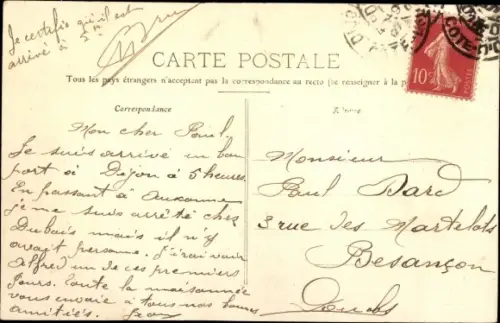 Je certifie qu'il est
arrivé à 5 h
CARTE POSTALE
Tous les pays étrangers n'acceptent pas la correspondance au recto (se renseigner à la
Correspondance
Mon cher Paul,
Je suis arrivé en bon
port à Dijon à 5 heures.
En passant à Auxonne
je me suis arrêté chez
Dubois mais il n'y
avait personne. J'irai voir
Alfred un de ces premiers
jours. Toute la maisonnée
vous envoie à tous nos bonnes
amitiés. Jean
10
Monsieur
Paul Dard
3 rue des Martelots
Besançon
Doubs